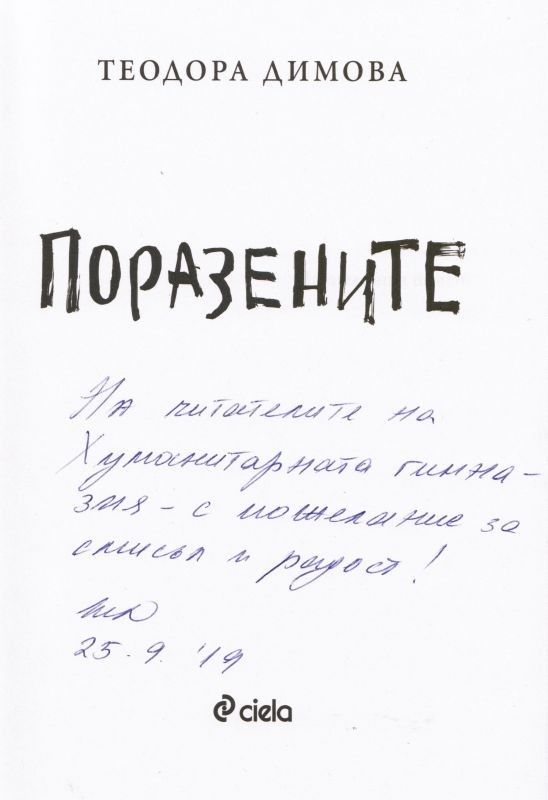 ТЕОДОРА ДИМОВА
ПОРАЗЕНИТЕ
На читателите на
Хуманитарната гимна-
зия - с пожелание за
смисъл и радост!
25.9.'19
ciela